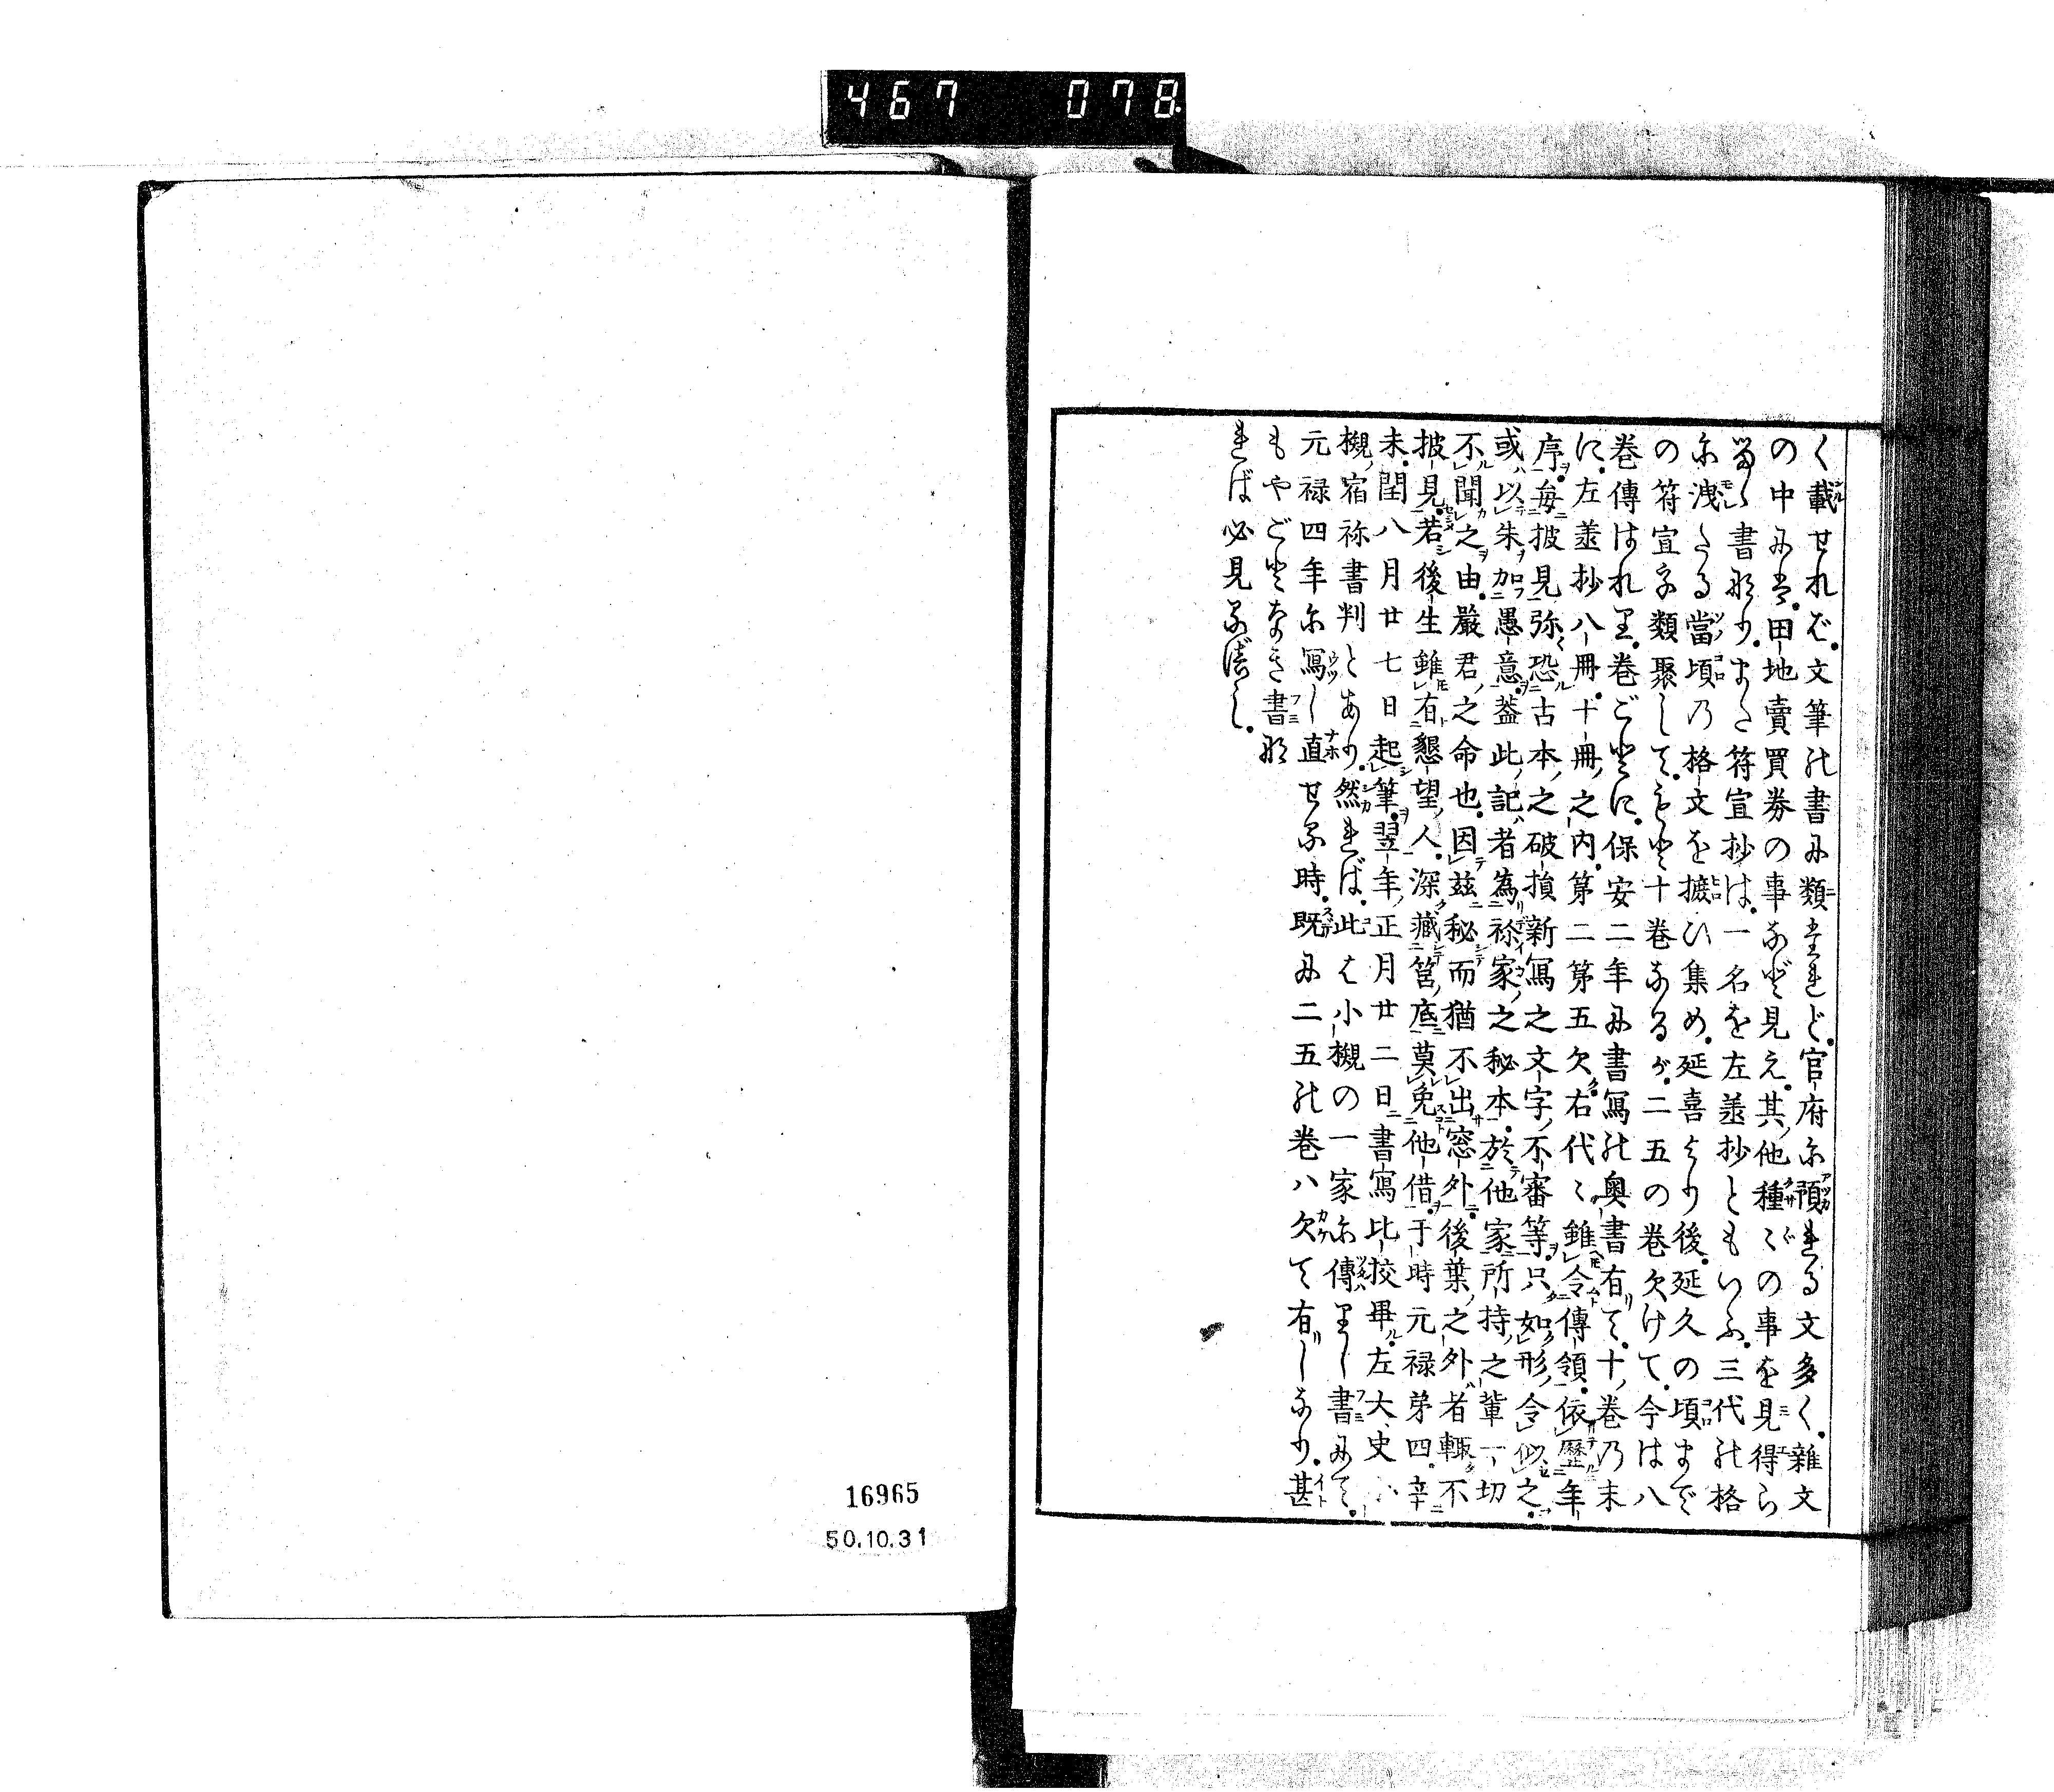 467 078
く載せれば。文筆の書に類すれど。官府に預れる文多く。雑文
の中には。田地賣買券の事など見え。其他種々の事を見得ら
るゝ書なり。また符宣抄は。一名を左丞抄ともいふ。三代の格
に洩たる當頃の格文を摭ひ集め。延喜より後。延久の頃まで
の符宣を類聚して。もと十巻なるが。二五の巻欠けて。今は八
巻傳はれり。巻ごとに。保安二年に書寫の奥書有て。十巻の末
に。左丞抄八冊。十冊之内。第二第五欠。右代々雖令傳領。依歴年
序。毎披見弥恐古本之破損新寫之文字不審等。只如形令似之。
或以朱加愚意。蓋此記者為祢家之秘本。於他家所持之輩一切
不聞之由。嚴君之命也。因茲秘而猶不出窓外。後葉之外者輙不
披見。若後生雖有懇望人。深藏筥底莫免他借。于時元禄第四。辛
未。閏八月廿七日起筆。翌年正月廿二日書寫比挍畢。左大史小
槻宿祢書判とあり。然れば。此は小槻の一家に傳りし書にて。
元禄四年に寫し直せる時。既に二五の巻ハ欠て有しなり。甚
もやごとなき書な
れば必見るべし。
16965
50.10.31